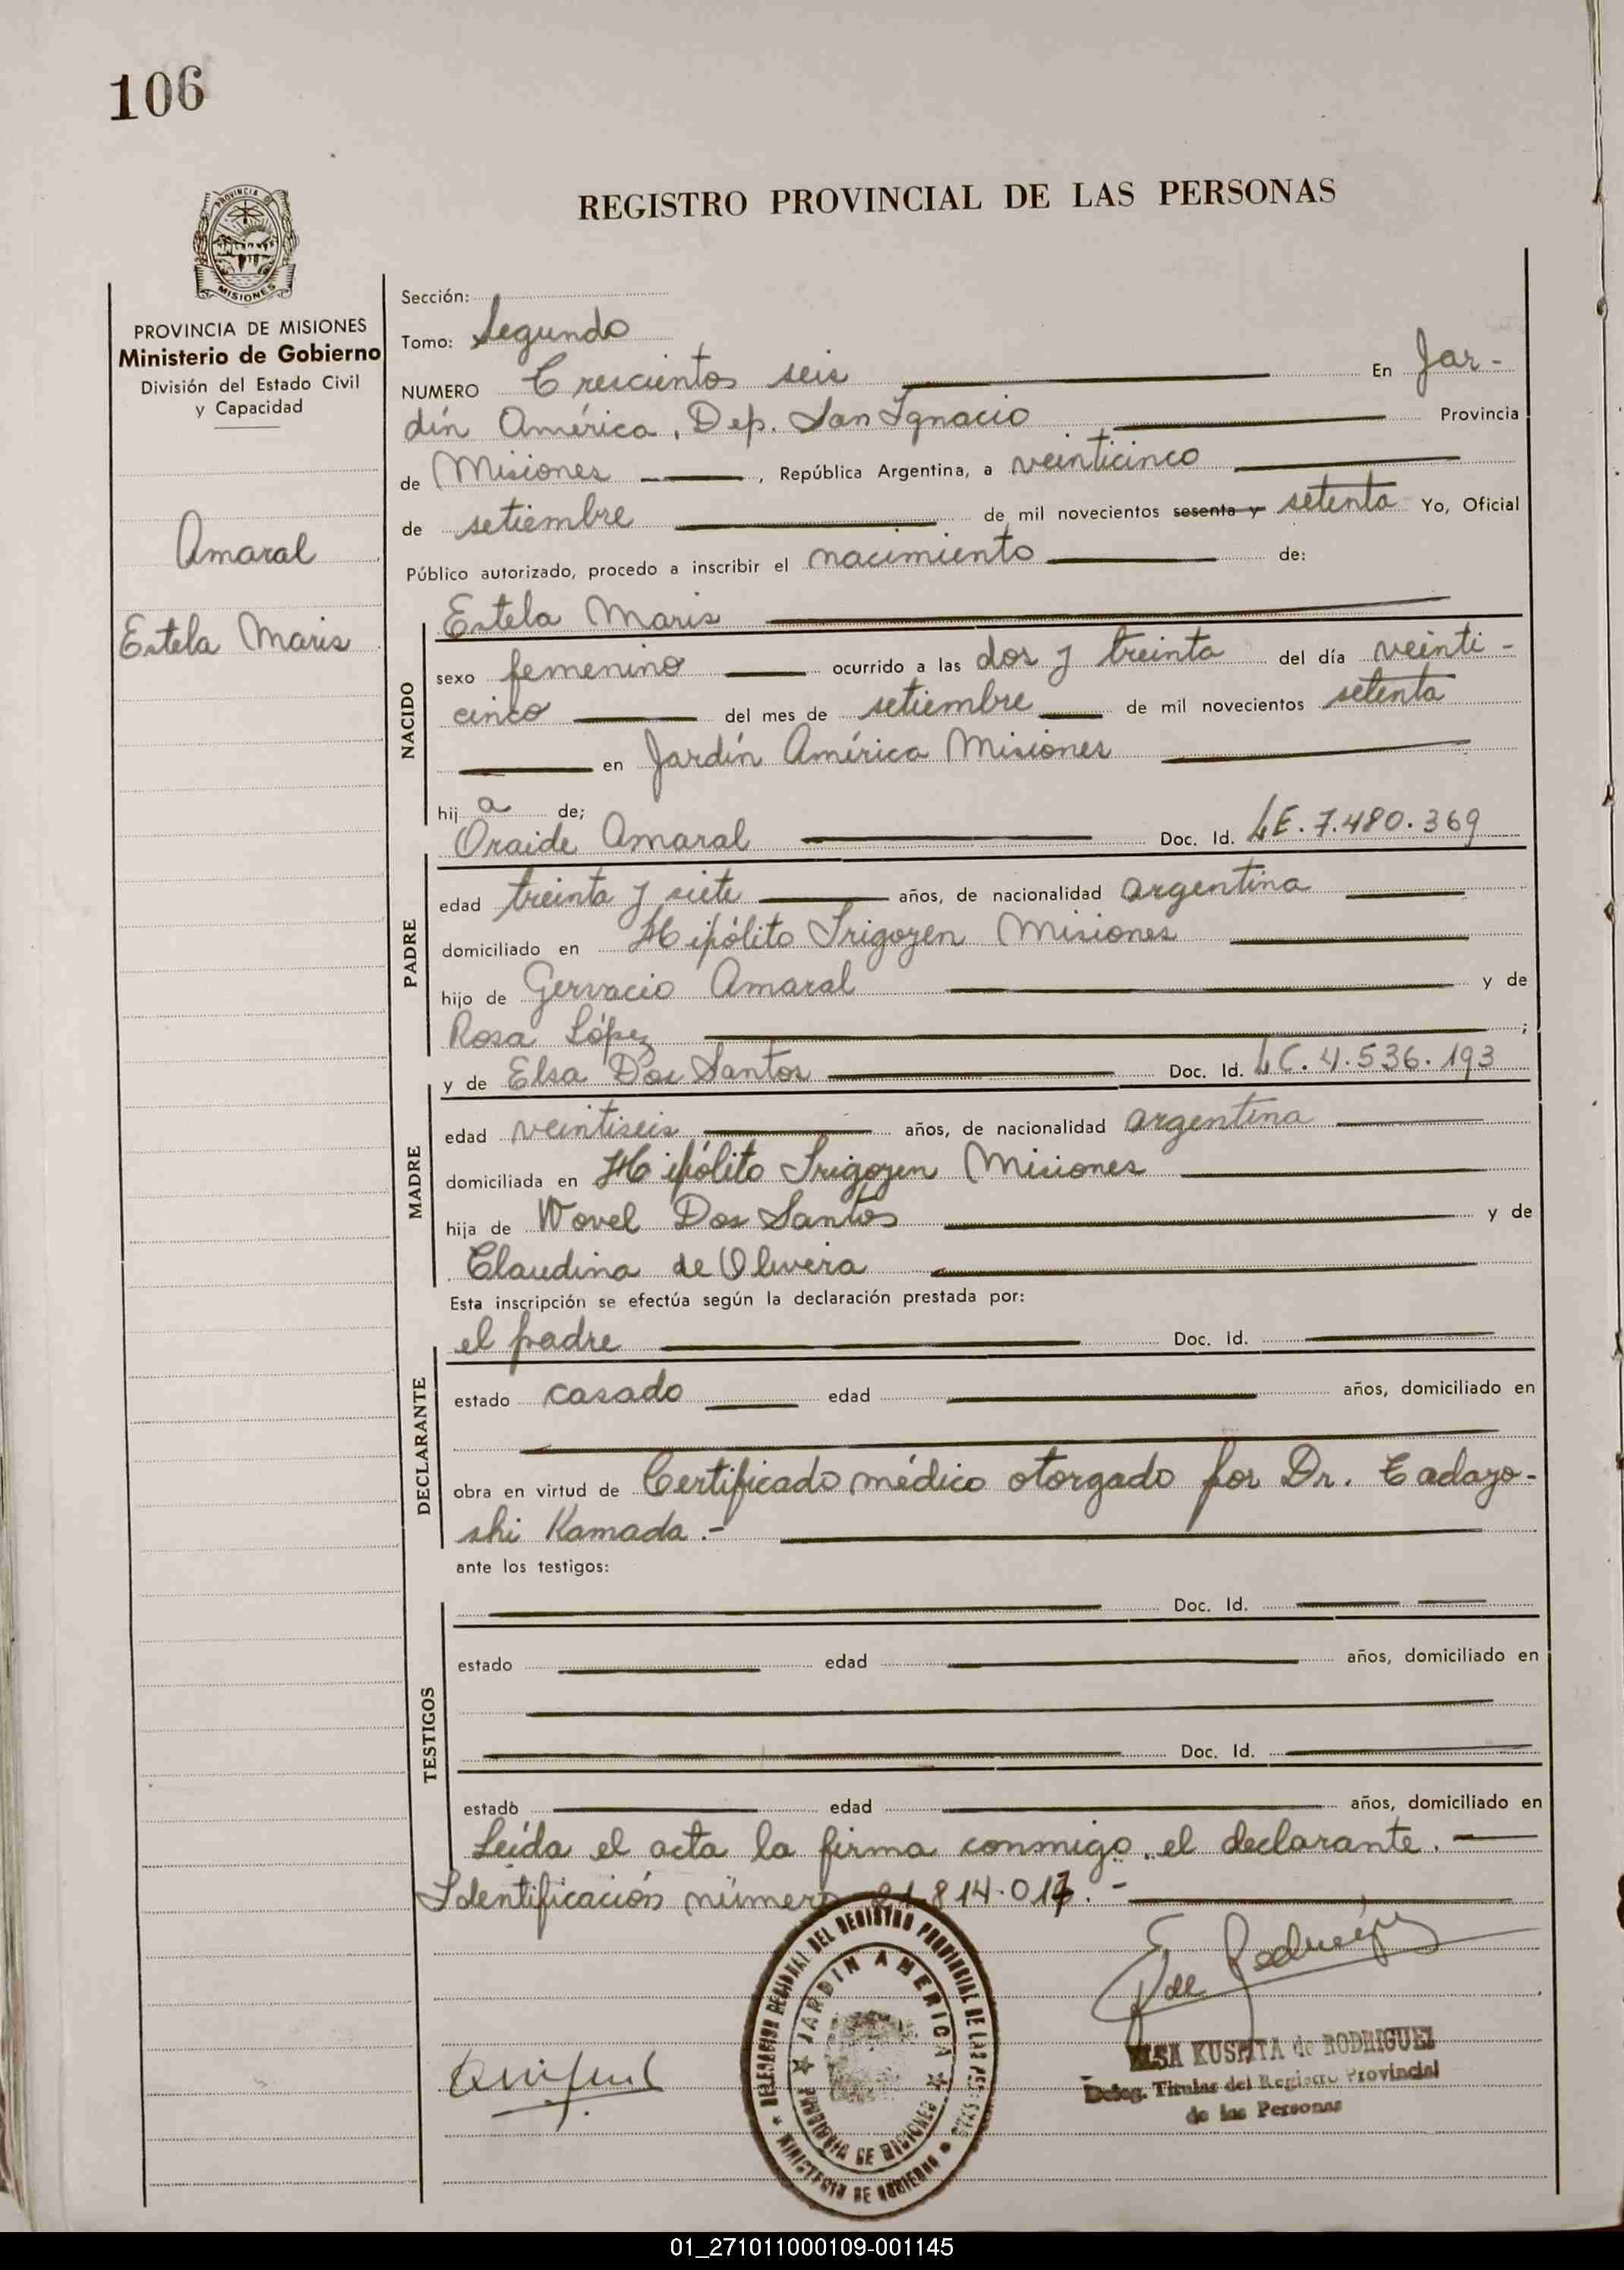 106
REGISTRO PROVINCIAL DE LAS PERSONAS
PROVINCIA
MISIONES
PROVINCIA DE MISIONES
Ministerio de Gobierno
División del Estado Civil
y Capacidad
Amaral
Estela Maris
Sección:
Tomo: Segundo
NUMERO Trescientos seis En Jar-
dín América, Dep. San Ignacio Provincia
de Misiones, República Argentina, a veinticinco
de setiembre de mil novecientos sesenta y setenta Yo, Oficial
Público autorizado, procedo a inscribir el nacimiento de:
Estela Maris
NACIDO
sexo femenino ocurrido a las dos y treinta del día veinti-
cinco del mes de setiembre de mil novecientos setenta
en Jardín América Misiones
hij a de;
Oraide Amaral Doc. Id. LE. 7.480.369
PADRE
edad treinta y siete años, de nacionalidad argentina
domiciliado en Hipólito Irigoyen Misiones
hijo de Gervacio Amaral y de
Rosa López ;
y de Elsa Dos Santos Doc. Id. LC. 4.536.193
MADRE
edad veintiseis años, de nacionalidad argentina
domiciliada en Hipólito Irigoyen Misiones
hija de Wovel Dos Santos y de
Claudina de Olivera
Esta inscripción se efectúa según la declaración prestada por:
el padre Doc. Id.
DECLARANTE
estado casado edad años, domiciliado en
obra en virtud de Certificado médico otorgado por Dr. Tadayo-
shi Kamada.-
ante los testigos:
Doc. Id.
TESTIGOS
estado edad años, domiciliado en
Doc. Id.
estado edad años, domiciliado en
Leída el acta la firma conmigo, el declarante.
Identificación número 21.814.017.-
DELEGACION REGIONAL DEL REGISTRO PROVINCIAL DE LAS PERSONAS
JARDIN AMERICA
PROVINCIA DE MISIONES
MINISTERIO DE GOBIERNO
ELSA KUSPITA de RODRIGUEZ
Deleg. Titular del Registro Provincial
de las Personas
01_271011000109-001145